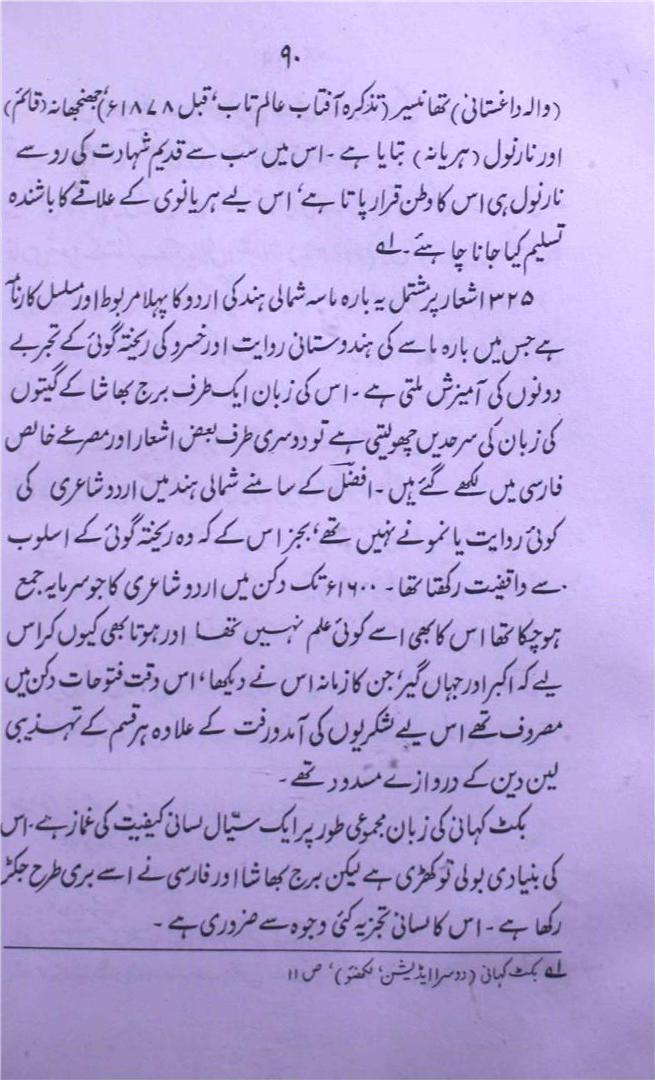 ۹۰
(والہ داغستانی) تھانیسر (تذکرہ آفتاب عالم تاب، قبل ۱۸۷۸ء)، جھنجھانہ (قائم)
اور نارنول (ہریانہ) بتایا ہے ۔ اس میں سب سے قدیم شہادت کی رو سے
نارنول ہی اس کا وطن قرار پاتا ہے، اس لیے ہریانوی کے علاقے کا باشندہ
تسلیم کیا جانا چاہئے ۔ ۱ے
۳۲۵ اشعار پر مشتمل یہ بارہ ماسہ شمالی ہند کی اردو کا پہلا مربوط اور مسلسل کارنامہ
ہے جس میں بارہ ماسے کی ہندوستانی روایت اور خسرو کی ریختہ گوئی کے تجربے
دونوں کی آمیزش ملتی ہے ۔ اس کی زبان ایک طرف برج بھاشا کے گیتوں
کی زبان کی سرحدیں چھو لیتی ہے تو دوسری طرف بعض اشعار اور مصرعے خالص
فارسی میں لکھے گئے ہیں ۔ افضلؔ کے سامنے شمالی ہند میں اردو شاعری کی
کوئی روایت یا نمونے نہیں تھے، بجز اس کے کہ وہ ریختہ گوئی کے اسلوب
سے واقفیت رکھتا تھا ۔ ۱۶۰۰ء تک دکن میں اردو شاعری کا جو سرمایہ جمع
ہو چکا تھا اس کا بھی اسے کوئی علم نہیں تھا اور ہوتا بھی کیوں کر اس
لیے کہ اکبر اور جہاں گیر، جن کا زمانہ اس نے دیکھا، اس وقت فتوحات دکن میں
مصروف تھے اس لیے لشکریوں کی آمد ورفت کے علاوہ ہر قسم کے تہذیبی
لین دین کے دروازے مسدود تھے ۔
بکٹ کہانی کی زبان مجموعی طور پر ایک سیّال لسانی کیفیت کی غماز ہے ۔ اس
کی بنیادی بولی تو کھڑی ہے لیکن برج بھاشا اور فارسی نے اسے بری طرح جکڑ
رکھا ہے ۔ اس کا لسانی تجزیہ کئی وجوہ سے ضروری ہے ۔
۱ے بکٹ کہانی (دوسرا ایڈیشن، لکھنؤ)، ص ۱۱